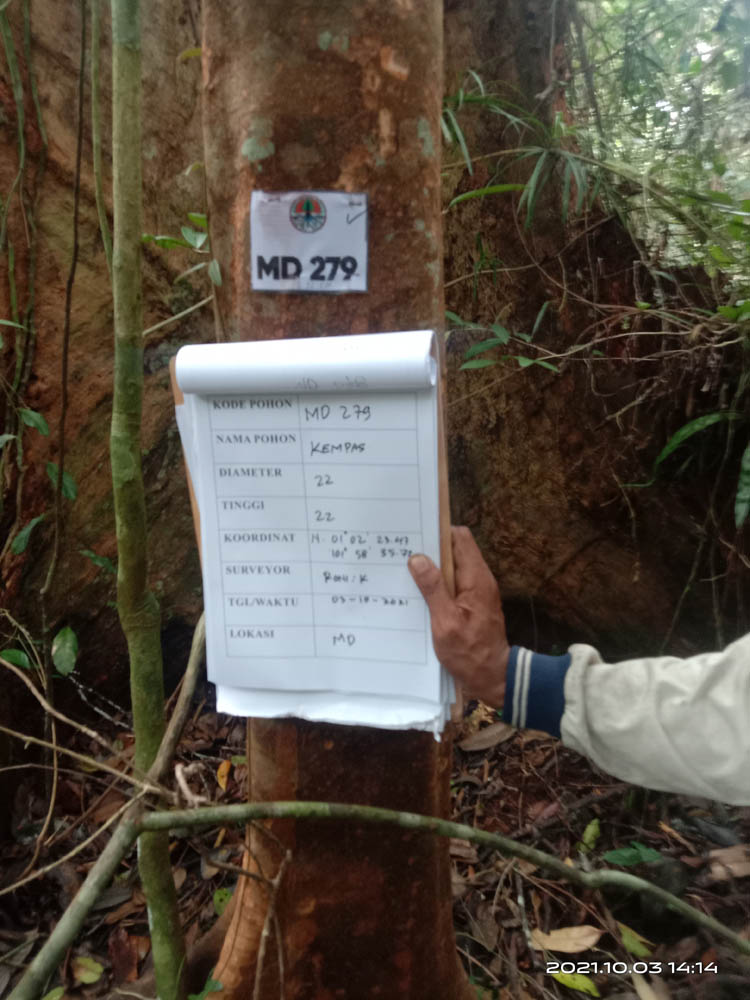 MD 279
KODE POHON MD 279
NAMA POHON KEMPAS
DIAMETER 22
TINGGI 22
KOORDINAT N. 01° 02' 23.47
101° 58' 35.72
SURVEYOR
TGL/WAKTU 03-10-2021
LOKASI MD
2021.10.03 14:14